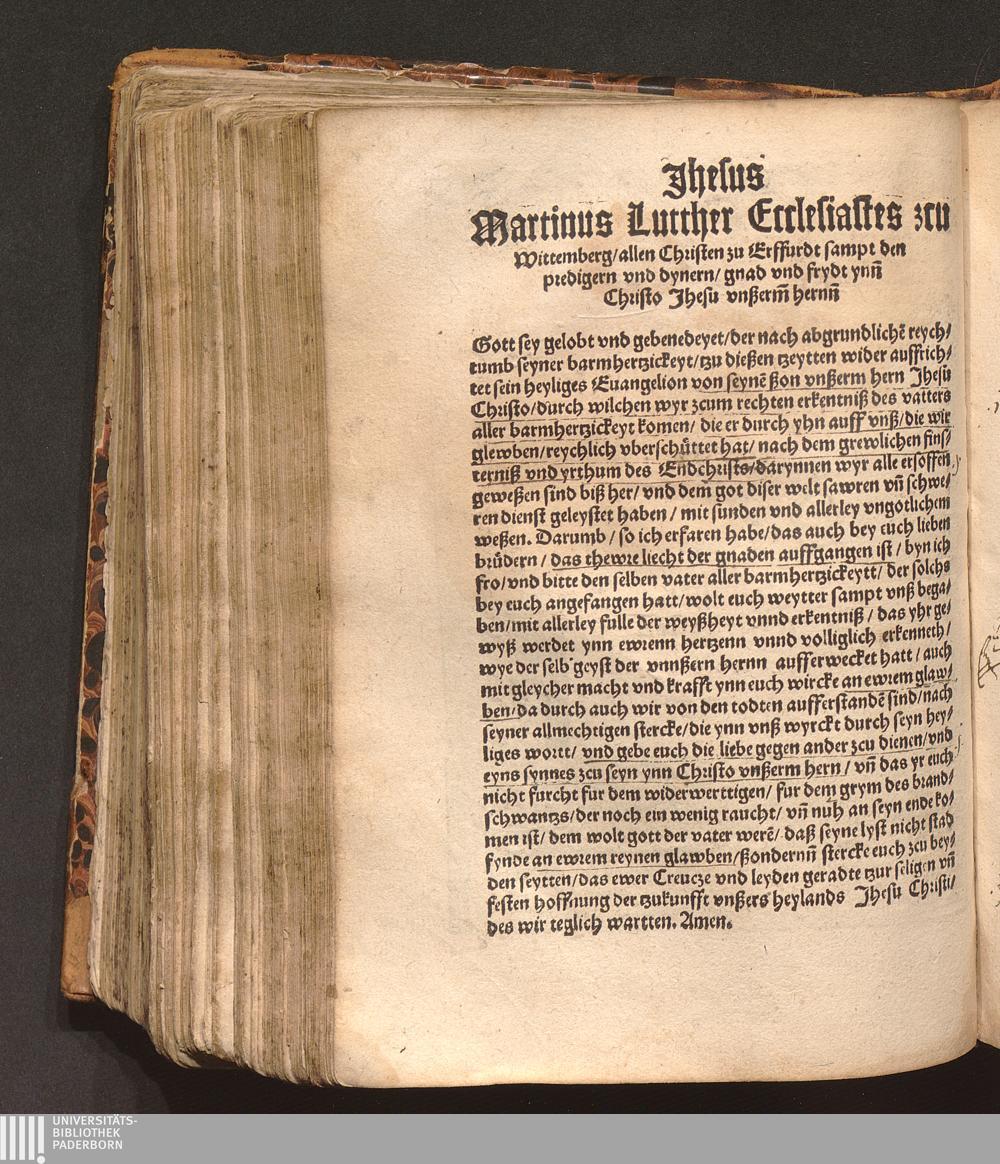 Jhesus
Martinus Lutther Ecclesiastes zcu
Wittemberg/allen Christen zu Erffurdt sampt den
predigern vnd dynern/ gnad vnd frydt ynn̄
Christo Jhesu vnßerm̄ hernn̄
Gott sey gelobt vnd gebenedeyet/der nach abgrundlichē reych/
tumb seyner barmhertzickeyt/tzu dießen tzeytten wider auffrich/
tet sein heyliges Euangelion von seynē ßon vnßerm hern Jhesū
Christo/durch wilchen wyr zcum rechten erkentniß des vatters
aller barmhertzickeyt komen/ die er durch yhn auff vnß/die wir
glewben/reychlich vberschüttet hat/ nach dem grewlichen fins/
terniß vnd yrthum des Endchrists/darynnen wyr alle ersoffen
geweßen sind biß her/ vnd dem got diser welt sawren vn̄ schwe/
ren dienst geleystet haben / mit sunden vnd allerley vngotlichem
weßen. Darumb / so ich erfaren habe/das auch bey euch lieben
brůdern / das thewre liecht der gnaden auffgangen ist / byn ich
fro/vnd bitte den selben vater aller barmhertzickeytt/ der solchs
bey euch angefangen hatt/wolt euch weytter sampt vnß bega/
ben/mit allerley fulle der weyßheyt vnnd erkentniß / das yhr ge/
wyß werdet ynn ewrenn hertzenn vnnd volliglich erkenneth/
wye der selb geyst der vnnßern hernn aufferwecket hatt / auch
mit gleycher macht vnd krafft ynn euch wircke an ewrem glaw/
ben/da durch auch wir von den todten aufferstandē sind/nach
seyner allmechtigen stercke/die ynn vnß wyrckt durch seyn hey/
liges wortt/ vnd gebe euch die liebe gegen ander zcu dienen/vnd
eyns synnes zcu seyn ynn Christo vnßerm hern/ vn̄ das yr euch
nicht furcht fur dem widerwerttigen/ fur dem grym des brand/
schwantzs/der noch ein wenig raucht/ vn̄ nuh an seyn ende ko/
men ist/ dem wolt gott der vater werē/ daß seyne lyst nicht stad
fynde an ewrem reynen glawben/ßondernn̄ stercke euch zcu bey/
den seytten/das ewer Creucze vnd leyden geradte tzur seligen vn̄
festen hoffnung der tzukunfft vnßers heylands Jhesu Christi/
des wir teglich wartten. Amen.
UNIVERSITÄTS-
BIBLIOTHEK
PADERBORN